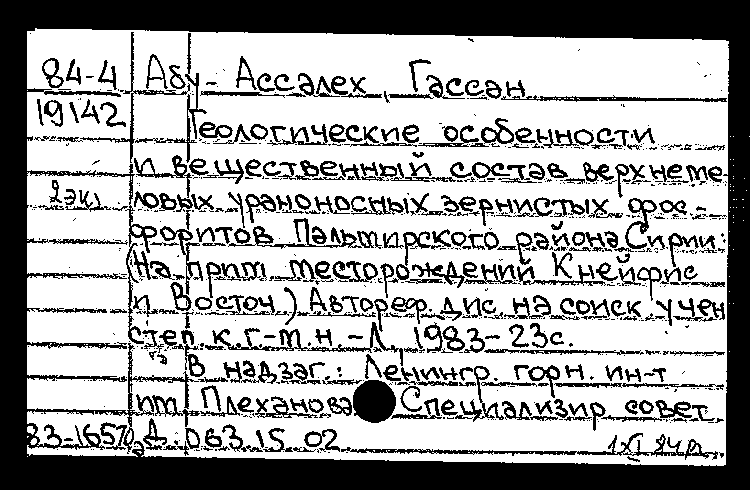 84-4 Абу-Ассалех, Гассан
19142 Геологические особенности
и вещественный состав верхнеме-
2 экз ловых ураноносных зернистых фос-
форитов Пальмирского района Сирии:
(На прим месторождений Кнейфис
и Восточ.) Автореф. дис. на соиск учен
степ. к.г.-м.н. - Л. 1983 - 23с.
В надзаг.: Ленингр. горн. ин-т
им. Плеханова Специализир. совет
Д. 063.15.02